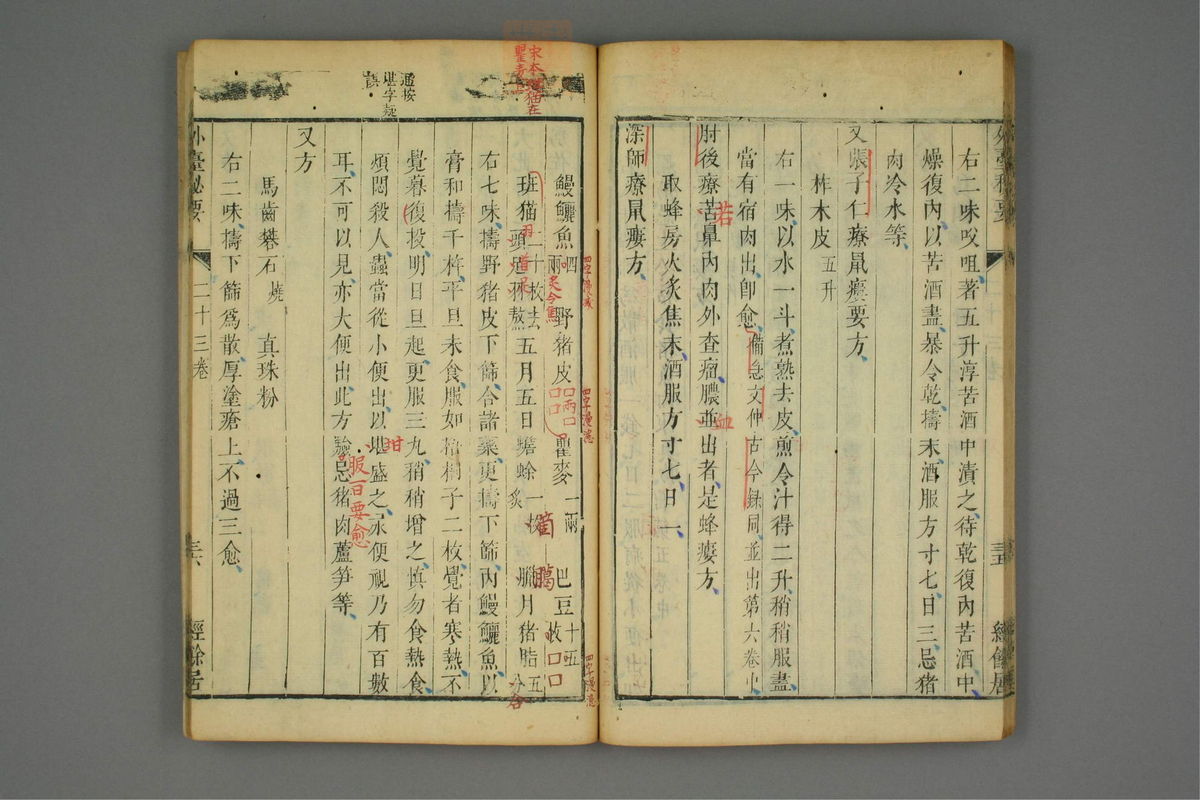 右二味㕮咀著五升淳苦酒中漬之待乾復內苦酒中
燥復內以苦酒盡暴令乾擣末酒服方寸七日三忌猪
肉冷水等
又張子仁療鼠瘻要方
柞木皮五升
右一味以水一斗煮熟去皮煎令汁得二升稍稍服盡
當有宿肉出卽愈備急文仲古今錄同並出第六卷中
肘後療苦鼻內肉外查瘤膿並出者是蜂瘻方
若
血
取蜂房火炙焦末酒服方寸七日一
深師療鼠瘻方
外臺秘要
經餘居
宋本
通按
堪字疑
誤
鰻鱺魚四兩
炙令焦
野豬皮
瞿麥一兩
巴豆十五枚
斑猫二十枚去頭
五月五日蟾蜍一枚炙
臘月猪脂五合
右七味擣野猪皮下篩合諸藥更擣下篩內鰻鱺魚以
膏和擣千杵平旦未食服如梧桐子二枚覺者寒熱不
覺暮復投明日旦起更服三丸稍稍增之慎勿食熱食
煩悶殺人蟲當從小便出以堪盛之尿便視乃有百數
坩
耳不可以見亦大便出此方驗忌猪肉蘆笋等
服百要愈
又方
馬齒礬石燒
真珠粉
右二味擣下篩爲散厚塗瘡上不過三愈
外臺秘要
二十三卷
經餘居